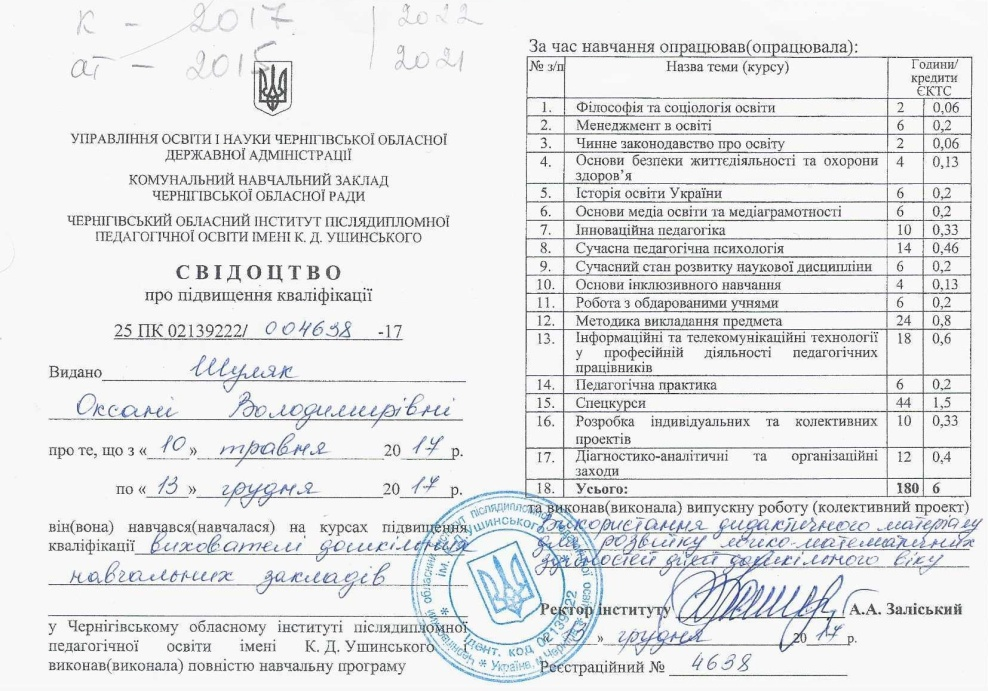 К - 2017 | 2022
ат - 2015 | 2021
УПРАВЛІННЯ ОСВІТИ І НАУКИ ЧЕРНІГІВСЬКОЇ ОБЛАСНОЇ
ДЕРЖАВНОЇ АДМІНІСТРАЦІЇ
КОМУНАЛЬНИЙ НАВЧАЛЬНИЙ ЗАКЛАД
ЧЕРНІГІВСЬКОЇ ОБЛАСНОЇ РАДИ
ЧЕРНІГІВСЬКИЙ ОБЛАСНИЙ ІНСТИТУТ ПІСЛЯДИПЛОМНОЇ
ПЕДАГОГІЧНОЇ ОСВІТИ ІМЕНІ К. Д. УШИНСЬКОГО
СВІДОЦТВО
про підвищення кваліфікації
25 ПК 02139222/ 004638 -17
Видано Шуляк
Оксані Володимирівні
про те, що з « 10 » травня 20 17 р.
по « 13 » грудня 20 17 р.
він(вона) навчався(навчалася) на курсах підвищення
кваліфікації вихователі дошкільних
навчальних закладів
у Чернігівському обласному інституті післядипломної
педагогічної освіти імені К. Д. Ушинського і
виконав(виконала) повністю навчальну програму
За час навчання опрацював(опрацювала):
№ з/п Назва теми (курсу) Години/
кредити
ЄКТС
1. Філософія та соціологія освіти 2 0,06
2. Менеджмент в освіті 6 0,2
3. Чинне законодавство про освіту 2 0,06
4. Основи безпеки життєдіяльності та охорони 4 0,13
здоров’я
5. Історія освіти України 6 0,2
6. Основи медіа освіти та медіаграмотності 6 0,2
7. Інноваційна педагогіка 10 0,33
8. Сучасна педагогічна психологія 14 0,46
9. Сучасний стан розвитку наукової дисципліни 6 0,2
10. Основи інклюзивного навчання 4 0,13
11. Робота з обдарованими учнями 6 0,2
12. Методика викладання предмета 24 0,8
13. Інформаційні та телекомунікаційні технології 18 0,6
у професійній діяльності педагогічних
працівників
14. Педагогічна практика 6 0,2
15. Спецкурси 44 1,5
16. Розробка індивідуальних та колективних 10 0,33
проектів
17. Діагностико-аналітичні та організаційні 12 0,4
заходи
18. Усього: 180 6
та виконав(виконала) випускну роботу (колективний проект)
Використання дидактичного матеріалу
для розвитку логіко-математичних
здібностей дітей дошкільного віку
Ректор інституту А.А. Заліський
« 13 » грудня 20 17 р.
Реєстраційний № 4638
Ідент. код 02139222